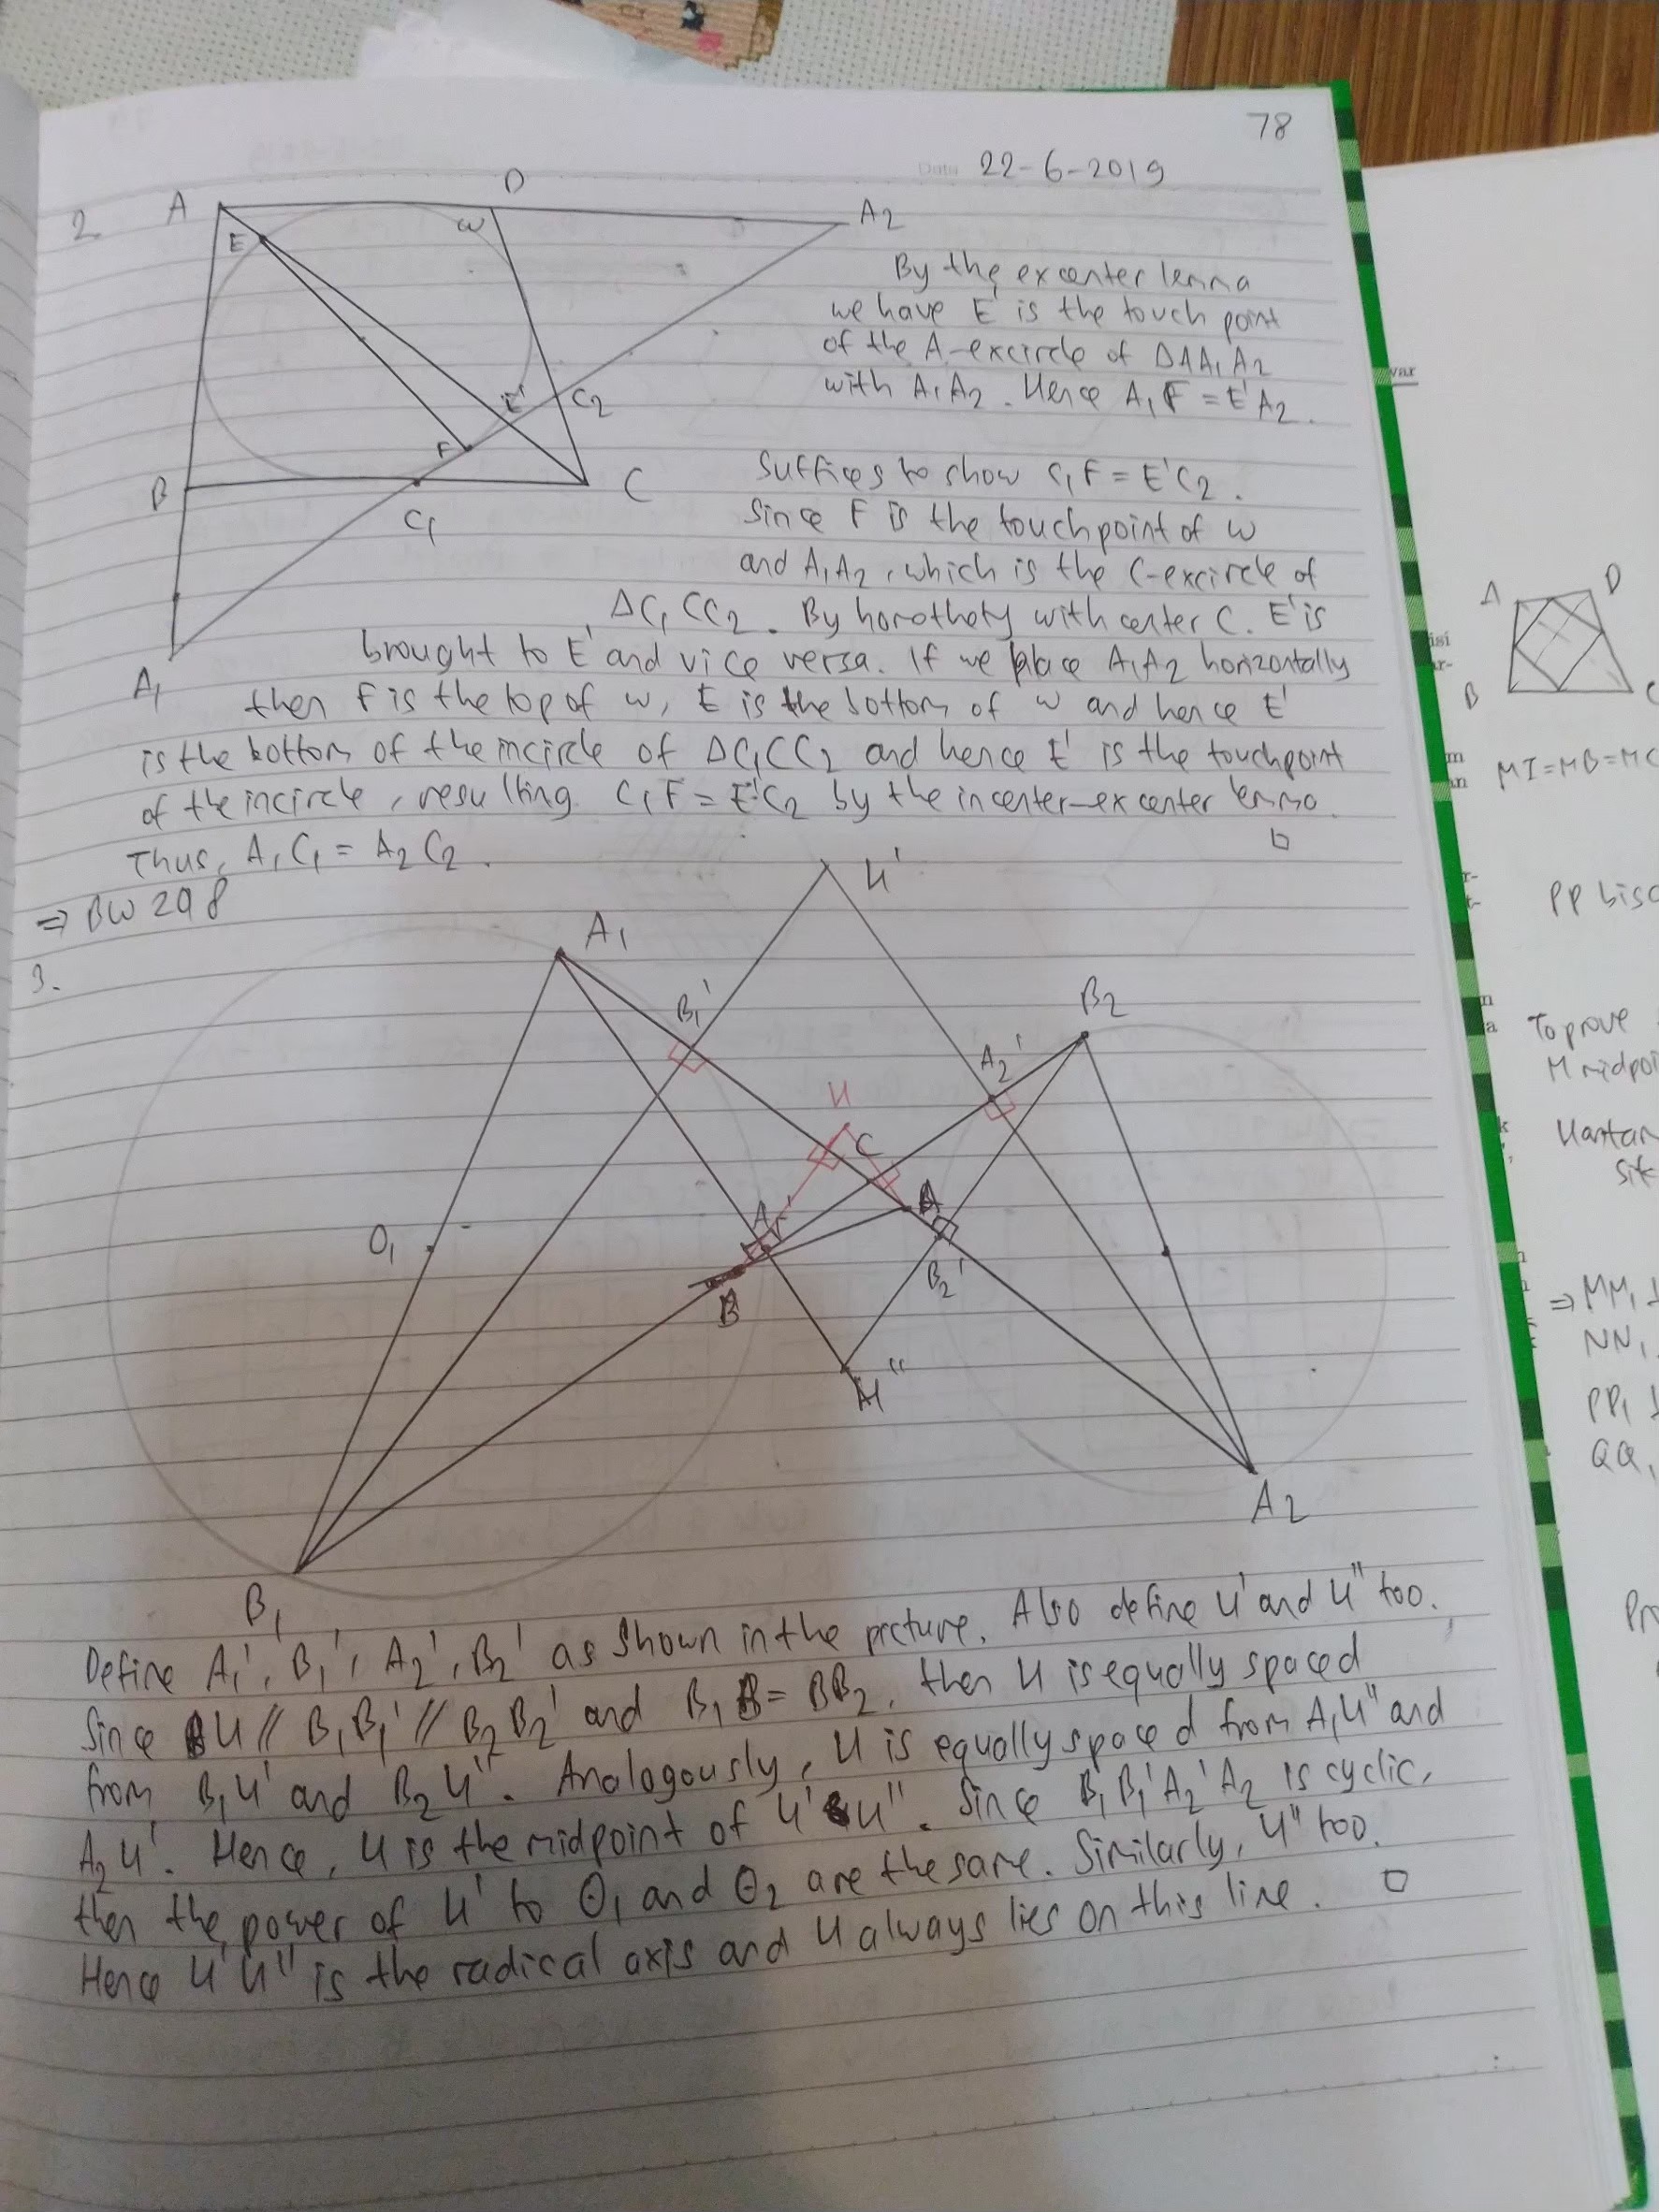 78
Data 22-6-2019
2
A
D
ω
A2
E
E'
C2
F
B
C
C1
A1
By the excenter lemma
we have E' is the touch point
of the A-excircle of ΔAA1A2
with A1A2. Hence A1F = E'A2.
Suffices to show C1F = E'C2.
Since F is the touchpoint of ω
and A1A2, which is the C-excircle of
ΔC1CC2. By homothety with center C. E' is
brought to E' and vice versa. If we place A1A2 horizontally
then F is the top of ω, E is the bottom of ω and hence E'
is the bottom of the incircle of ΔC1CC2 and hence E' is the touchpoint
of the incircle, resulting C1F = E'C2 by the incenter-excenter lemma.
Thus, A1C1 = A2C2. □
⇒ BW 298
3.
H'
A1
B1'
B2
A2'
H
C
A
A1'
O1
B2'
B
H''
A2
B1
Define A1', B1', A2', B2' as shown in the picture. Also define H' and H'' too.
Since BH // B1B1' // B2B2' and B1B = BB2, then H is equally spaced
from B1H' and B2H''. Analogously, H is equally spaced from A1H'' and
A2H'. Hence, H is the midpoint of H'H''. Since B1B1'A2'A2 is cyclic,
then the power of H' to Θ1 and Θ2 are the same. Similarly, H'' too.
Hence H'H'' is the radical axis and H always lies on this line. □
var
A
D
B
C
MI=MB=MC
PP bisc
To prove
M midpoi
Hantar
⇒ MM1
NN1
PP1
QQ1